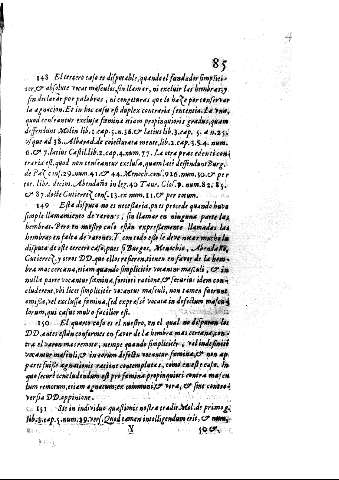 85
148 El tercero caso es disputable, quando el fundador simplici-
ter, & absolute vocat masculos, sin llamar, ni excluir las hembras, y
sin declarar por palabras, ni conjeturas que lo haze por conservar
la agnacion. Et in hoc casu est duplex contraria sententia. La una,
quod censeantur exclusa fœminæ etiam propinquioris gradus, quam
deffendunt Molin. lib. 2. cap. 5. n. 36. & latius lib. 3. cap. 5. a n. 25.
usque ad 38. Albarad. de coniecturata mente, lib. 2. cap. 3. §. 4. num.
6. & 7. latius Castil. lib. 2. cap. 4. num. 77. La otra procedencia con-
traria est, quod non censeantur exclusæ, quam late deffendunt Burg.
de Paz cons. 29. num. 41. & 44. Menoch. cons. 126. num. 30. & per
tot. libr. decius. Abendaño in leg. 40. Taur. Glos. 9. num. 82. 85.
& 87. docte Gutierrez cons. 13. ex num. 11. & per totum.
149 Esta disputa no es necesaria, pues procede quando huvo
simple llamamiento de varones, sin llamar en ninguna parte las
hembras. Pero en nuestro caso están expressamente llamadas las
hembras en falta de varones. Y con todo esso se deve notar mucho la
disputa de este tercero caso, pues si Burgos, Menochio, Abendaño,
Gutierrez, y otros DD. que ellos refieren, tienen en favor de la hem-
bra mas cercana, etiam quando simpliciter vocantur masculi, & in
nulla parte vocantur fœminæ, fortiori ratione, & securius idem con-
cluderent, ubi licet simpliciter vocantur masculi, non tamen fuerunt
omissæ, vel exclusæ fœminæ, sed expresse vocatæ in defectum mascu-
lorum, qui casus multo facilior est.
150 El quarto caso es el nuestro, en el qual no disputan los
DD. antes están conformes en favor de la hembra mas cercana, con-
tra el varon mas remoto, nempe quando simpliciter, vel indefinite
vocantur masculi, & in eorum defectu vocantur fœminæ, & non ap-
paret fuisse agnationis rationi contemplatus, como en este caso. In
quo securè concludendum est pro fœmina propinquiori contra mascu-
lum remotum, etiam agnatum: ex communi, & vera, & sine contro-
versia DD. opinione.
151 Sic in individuo quæstionis nostræ tradit Mol. de primog.
lib. 3. cap. 5. num. 39. vers. Quod tamen intelligendum erit, & num.
X 50. &